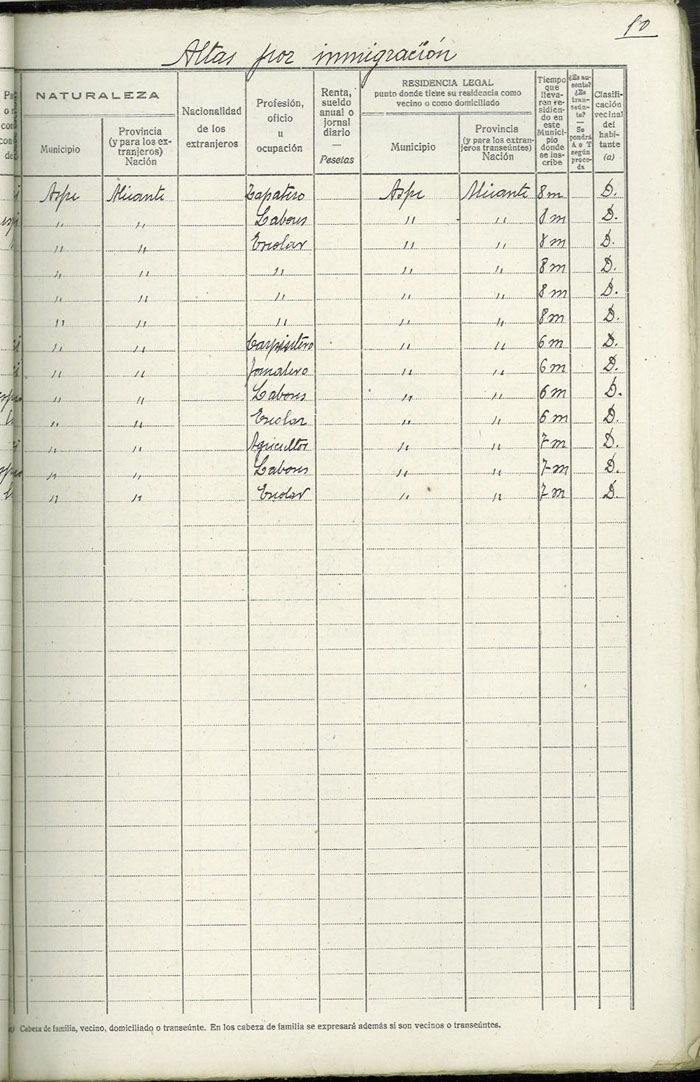 10
Altas por inmigración
NATURALEZA
Municipio
Provincia (y para los extranjeros) Nación
Nacionalidad de los extranjeros
Profesión, oficio u ocupación
Renta, sueldo anual o jornal diario — Pesetas
RESIDENCIA LEGAL
punto donde tiene su residencia como vecino o como domiciliado
Municipio
Provincia (y para los extranjeros transeúntes) Nación
Tiempo que llevaren residiendo en este Municipio donde se inscribe
¿Es ausente? ¿Es transeúnte? — Se pondrá A o T según proceda
Clasificación vecinal del habitante (a)
Aspe Alicante Zapatero Aspe Alicante 8 m D.
" " Labores " " 8 m D.
" " Escolar " " 8 m D.
" " " " " 8 m D.
" " " " " 8 m D.
" " " " " 8 m D.
" " Carpintero " " 6 m D.
" " Jornalero " " 6 m D.
" " Labores " " 6 m D.
" " Escolar " " 6 m D.
" " Agricultor " " 7 m D.
" " Labores " " 7 m D.
" " Escolar " " 7 m D.
Cabeza de familia, vecino, domiciliado o transeúnte. En los cabeza de familia se expresará además si son vecinos o transeúntes.